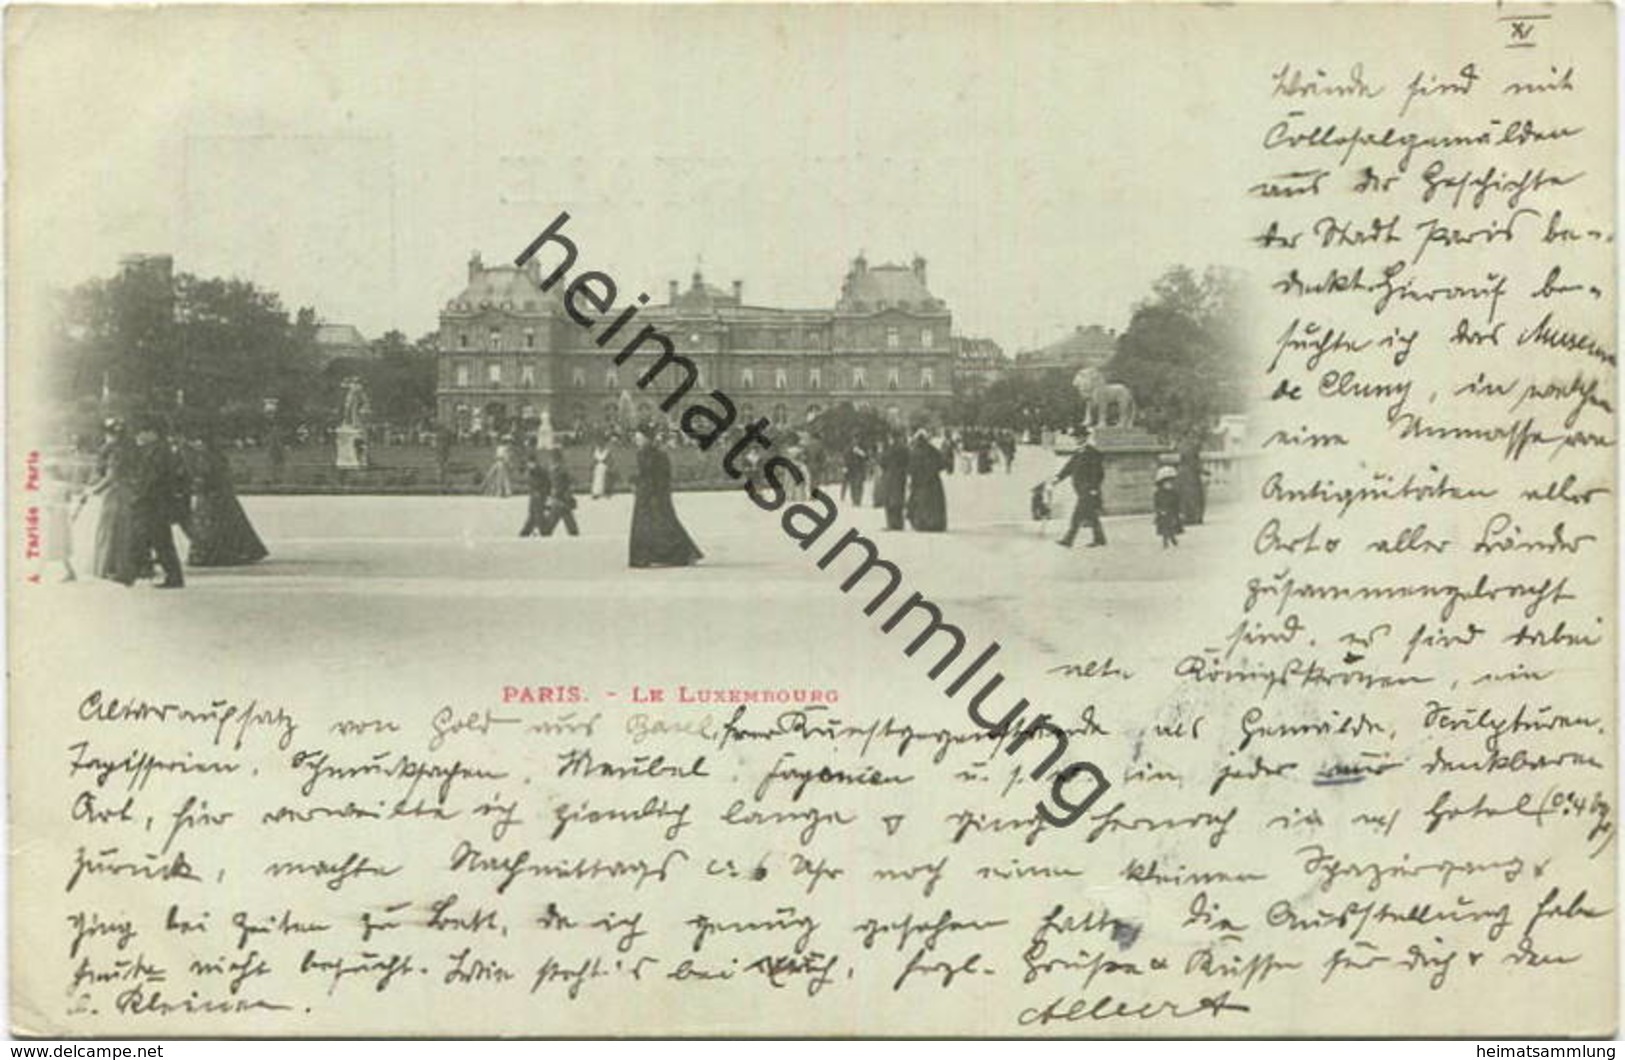 XV
Wände sind mit
Collosalgemälden
aus der Geschichte
der Stadt Paris be-
deckt. Hierauf be-
suchte ich das Museum
de Cluny, in welchem
eine Unmasse von
Antiquitäten aller
Art & aller Länder
zusammengebracht
sind. es sind dabei
alte Königskronen, ein
PARIS. - LE LUXEMBOURG
A Taride Paris
Altaraufsatz von Gold aus Basel, ferner Kunstgegenstände als Gemälde, Sculpturen.
Tapisserien. Schmucksachen. Meubel. Fayencen u. s. w. in jeder nur denkbaren
Art, hier verweilte ich ziemlich lange & ging hernach in m/ Hotel
zurück, machte Nachmittags ca. 6 Uhr noch einen kleinen Spaziergang &
ging bei Zeiten zu Bett, da ich genug gesehen hatte, die Ausstellung habe
heute nicht besucht. Wie steht's bei Euch, herzl. Grüsse & Küsse für dich & den
l. Kleinen.
Albert
heimatsammlung
www.delcampe.net
heimatsammlung